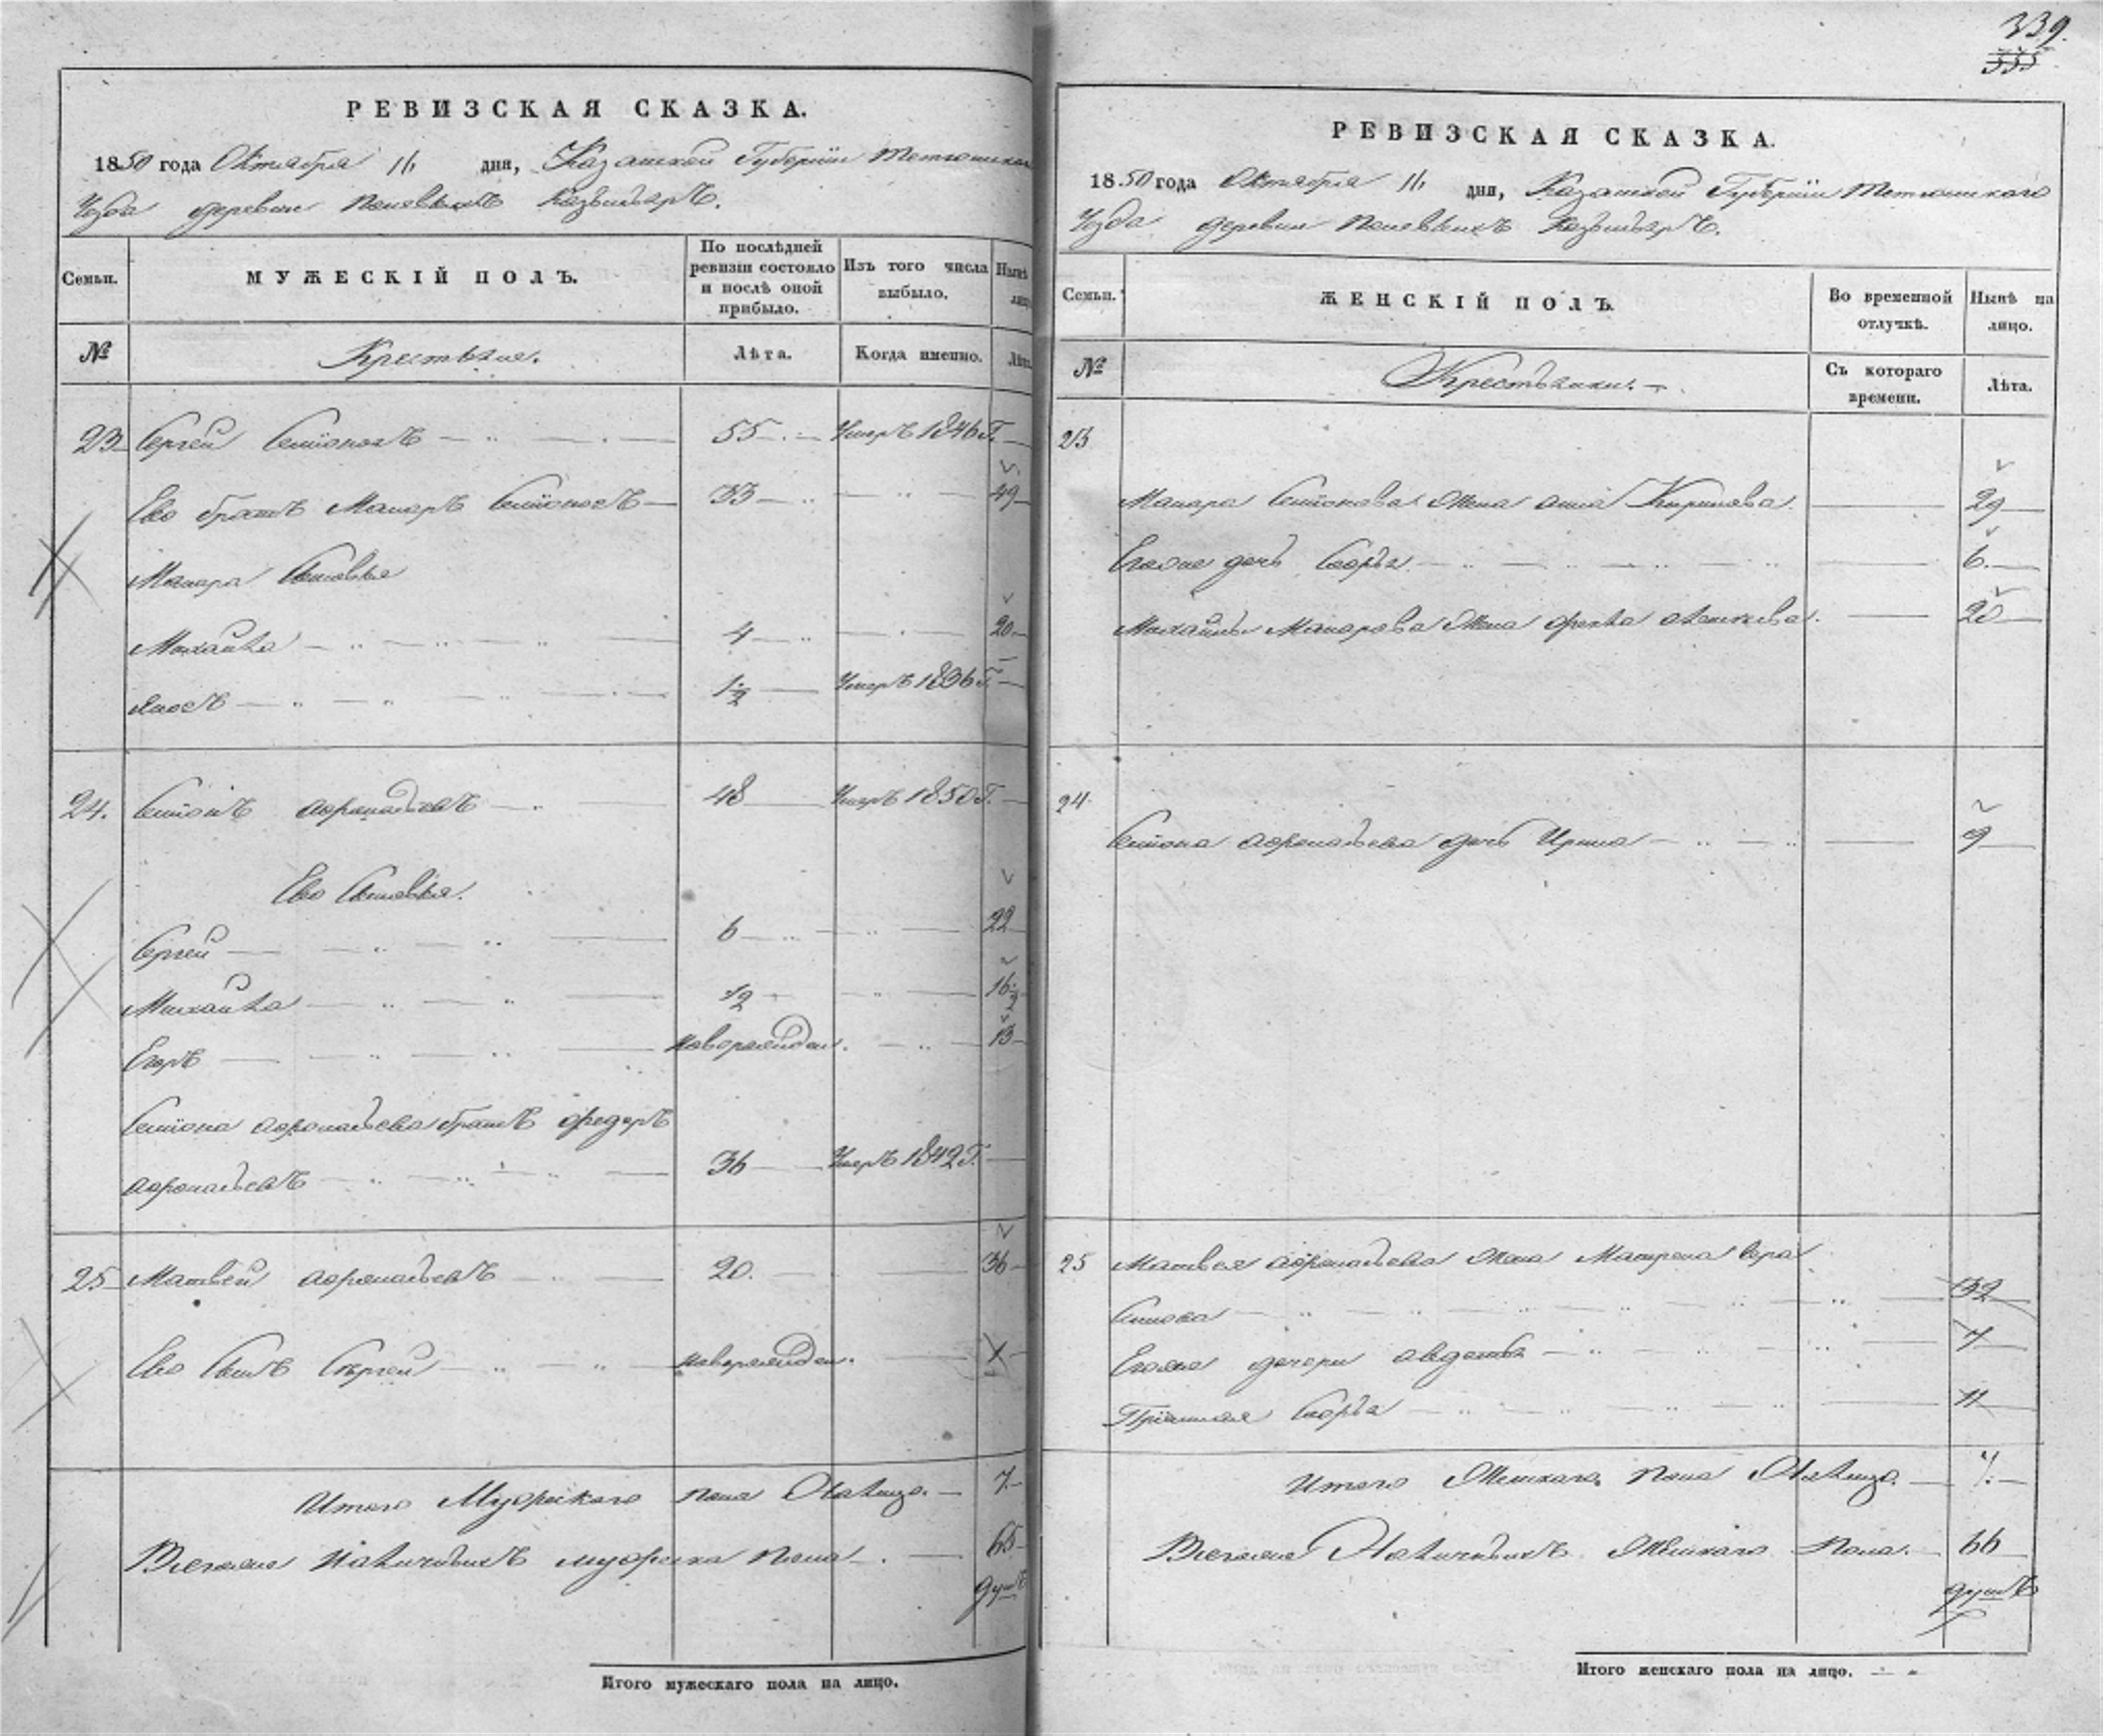 339.
335
РЕВИЗСКАЯ СКАЗКА.
1850 года Октября 16 дня, Казанской Губернїи Тетюшскаго
Уезда деревни Казыльяръ.
Семьи.
МУЖЕСКІЙ ПОЛЪ.
По послѣдней ревизіи состояло и послѣ оной прибыло.
Изъ того числа выбыло.
Нынѣ лицо
№
Крестьяне.
Лѣта.
Когда именно.
Лѣта.
23 Сергей Семїоновъ 55 Умеръ 1846 Г.
Ево братъ Макаръ Семїоновъ 33 49
Макара Сыновья
Михайла 4 20
Яковъ 1½ Умеръ 1836 Г.
24. Семїонъ 48 Умеръ 1850 Г.
Ево Сыновья.
Сергей 6 22
Михайла ½ 16½
Егоръ наворажден. 13
Семїона братъ Федоръ
36 Умеръ 1842 Г.
25 Матвей 20. 36
Ево Сынъ Сергей наворажден.
Итого Мужескаго пола Налицо. 7.
Всегоже Наличныхъ мужеска пола 65
душъ
Итого мужескаго пола на лицо.
РЕВИЗСКАЯ СКАЗКА.
1850 года Октября 16 дня, Казанской Губернїи Тетюшскаго
Уезда деревни Казыльяръ.
Семьи.
ЖЕНСКІЙ ПОЛЪ.
Во временной отлучкѣ.
Нынѣ на лицо.
№
Крестьянки.
Съ котораго времени.
Лѣта.
23
Макара Семїонова Жена анна 29
Егоже дочь Софья 6.
Михайлы Макарова Жена 20
24
Семїона дочь Ирина 9
25 Матвея Жена Матрена
32
Егоже дочери авдотья 7
Софья 11
Итого Женскаго пола Налицо. 7.
Всегоже Наличныхъ Женскаго Пола. 66
душъ
Итого женскаго пола на лицо.